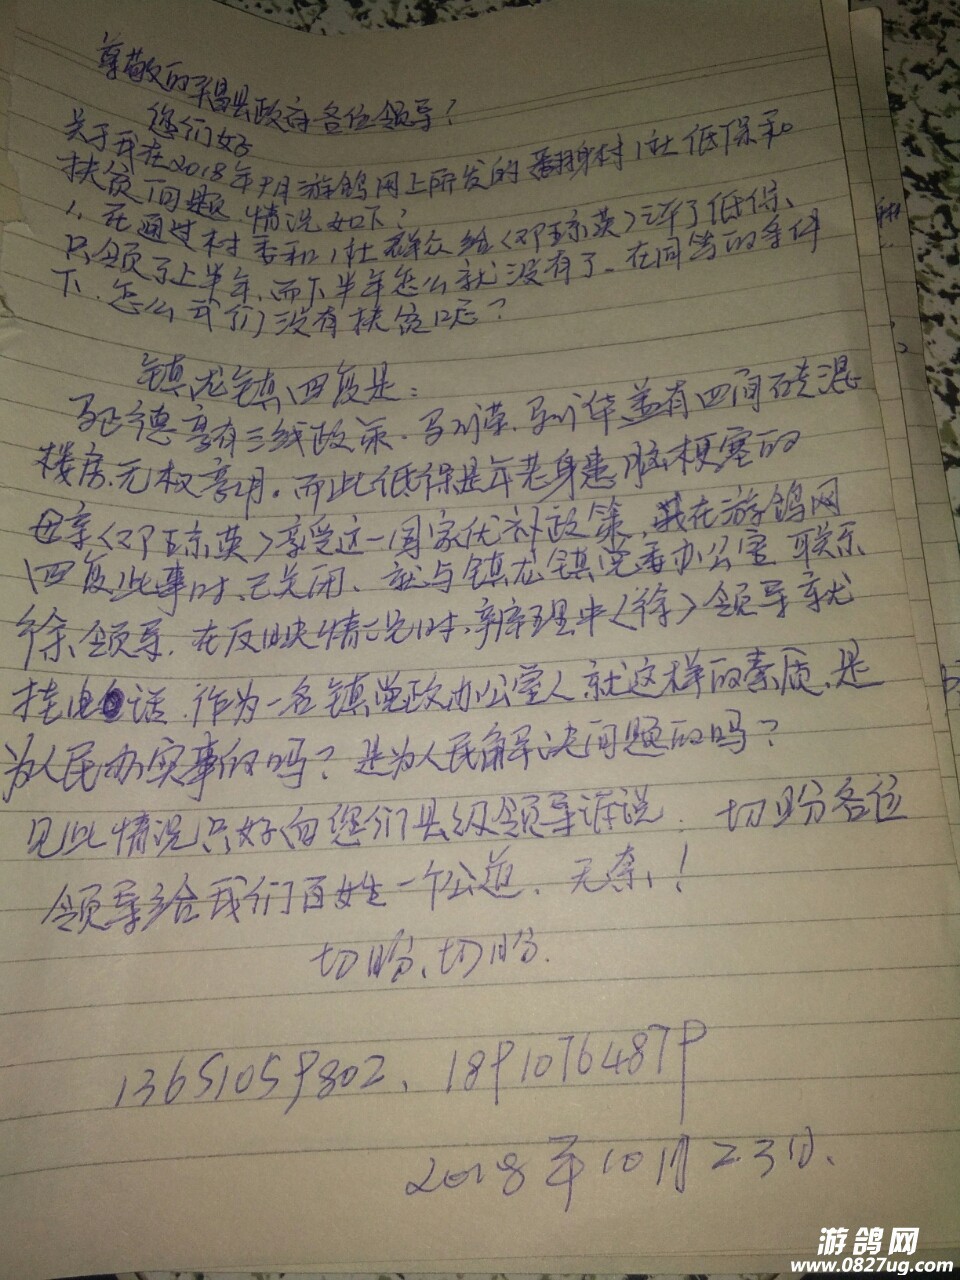 尊敬的平昌县政府各位领导?
您们好
关于我在2018年9月游鸽网上所发的翻身村1社低保和
扶贫问题 情况如下:
1、在通过村委和1社群众给<邓琼英>评了低保、
只领了上半年,而下半年怎么就没有了。在同等的条件
下、怎么我们没有扶贫呢?
镇龙镇回复是:
德享有三线政策、马川荣、马川华盖有四间砖混
楼房、无权享用。而此低保是年老身患脑梗塞的
母亲<邓琼英>享受这一国家优补政策,我在游鸽网
回复此事时、已关闭、就与镇龙镇党委办公室联系
徐、领导、在反映情况时、办理中<徐>领导就
挂电话、作为一名镇党政办公室人就这样的素质、是
为人民办实事的吗?是为人民解决问题的吗?
见此情况只好向您们县级领导诉说、切盼各位
领导给我们百姓一个公道、无奈!
切盼、切盼.
13651059802、18910764879
2018年10月23日、
游鸽网
www.0827ug.com